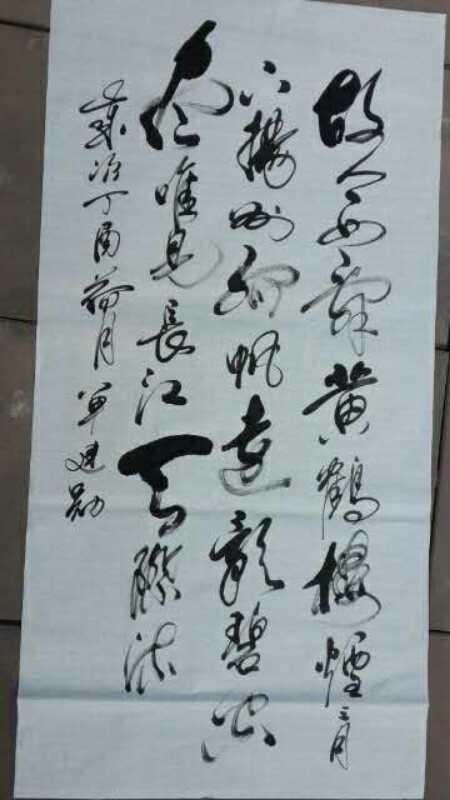 故人西辭黄鶴樓煙三月
下揚州孤帆遠影碧空
盡唯見長江天際流
歲次丁酉荷月 建勛